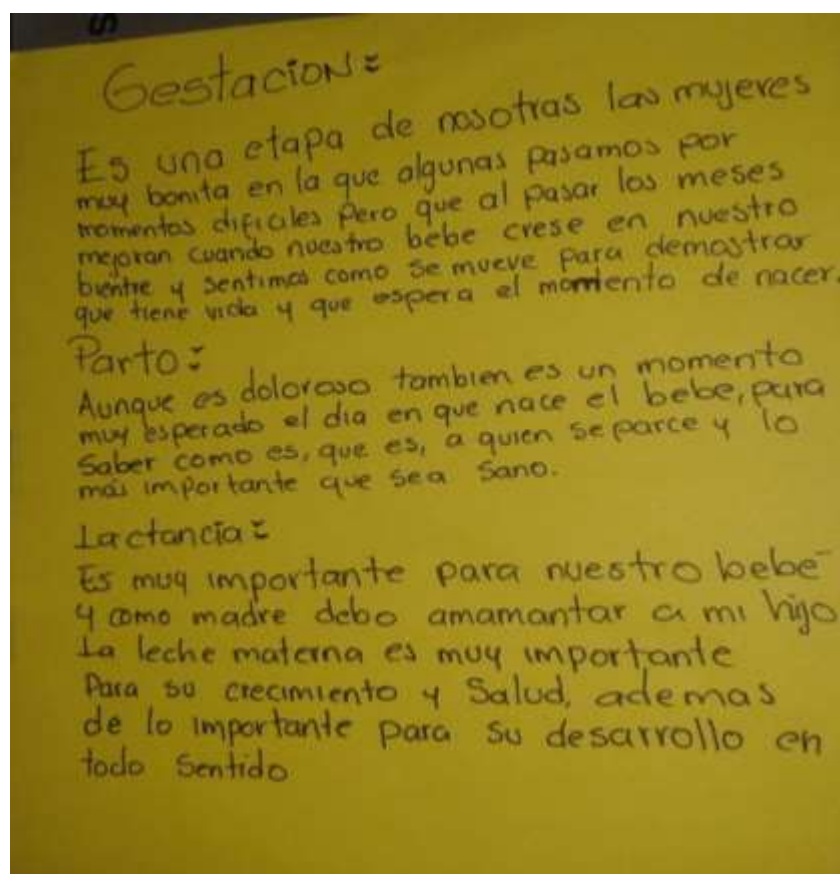 S
Gestacion:
Es una etapa de nosotras las mujeres
muy bonita en la que algunas pasamos por
momentos dificiales Pero que al pasar los meses
mejoran cuando nuestro bebe crese en nuestro
bientre y sentimos como se mueve para demostrar
que tiene vida y que espera el momento de nacer.
Parto:
Aunque es doloroso tambien es un momento
muy esperado el dia en que nace el bebe, para
Saber como es, que es, a quien se parce y lo
más importante que sea sano.
Lactancia:
Es muy importante para nuestro bebe
y como madre debo amamantar a mi hijo
La leche materna es muy importante
Para su crecimiento y Salud, ademas
de lo importante para su desarrollo en
todo Sentido